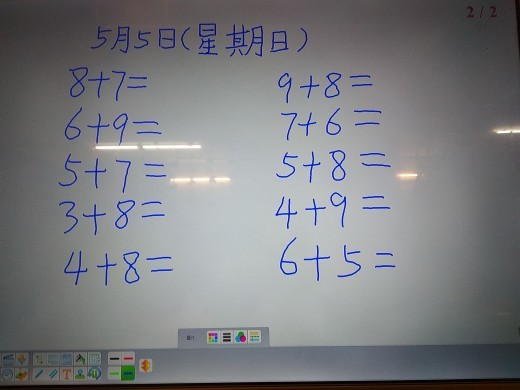 2/2
5月5日(星期日)
8+7= 9+8=
6+9= 7+6=
5+7= 5+8=
3+8= 4+9=
4+8= 6+5=